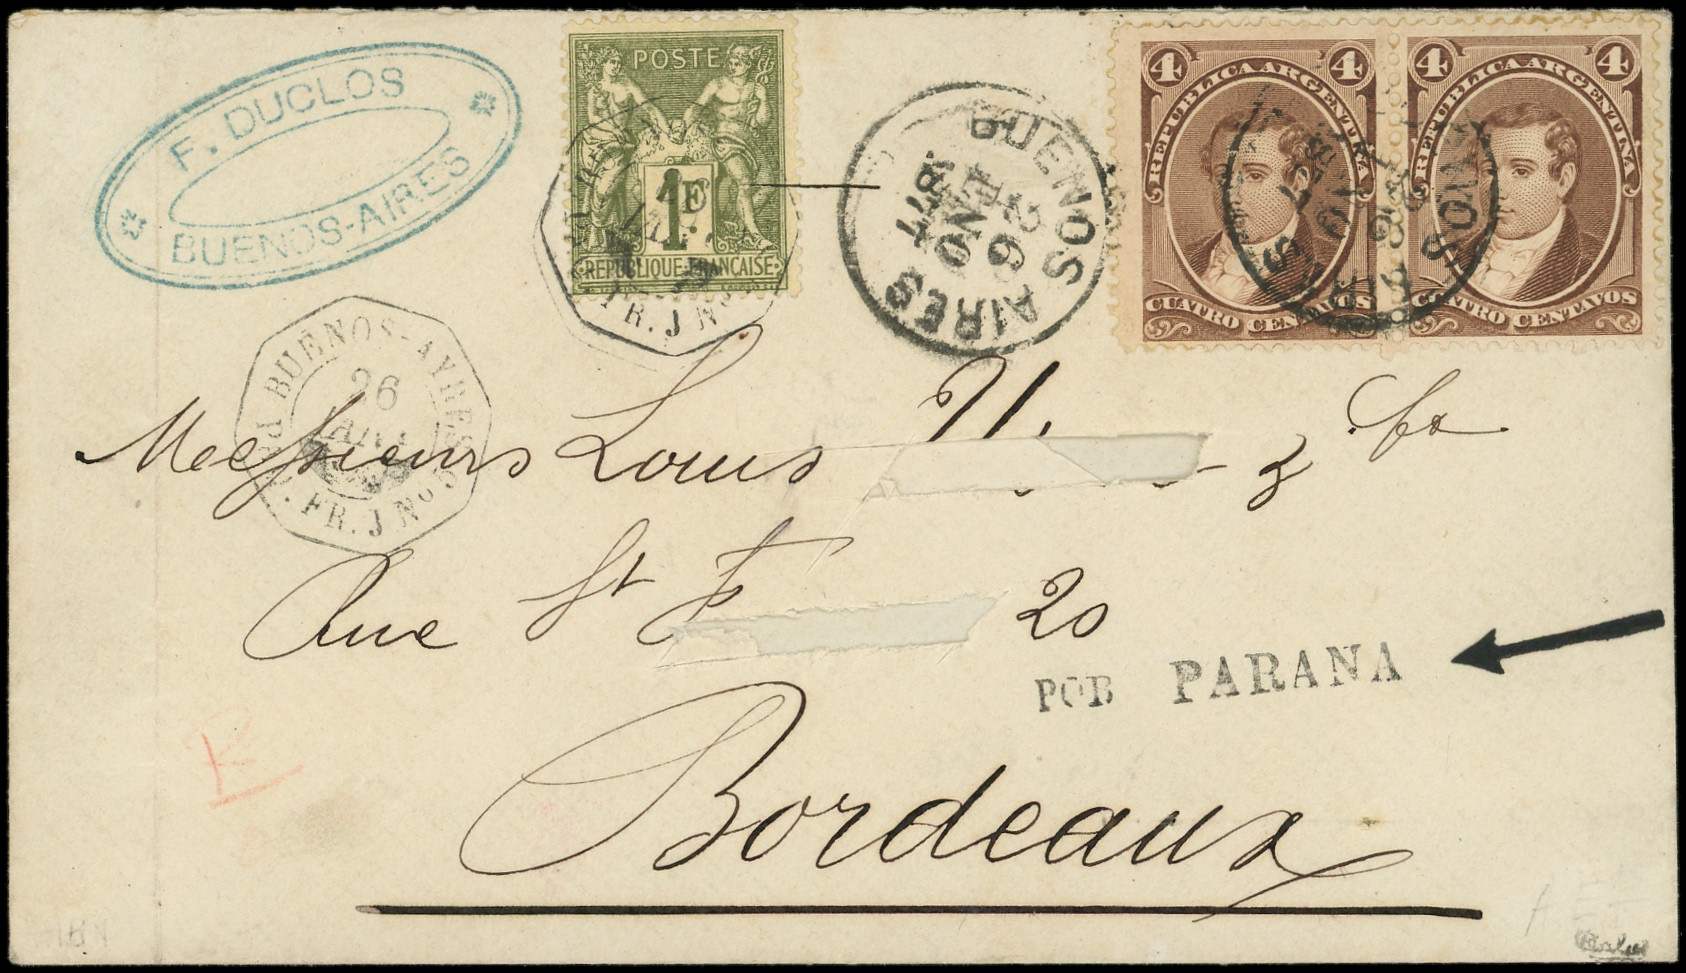 F. DUCLOS
BUENOS-AIRES
POSTE
1F
REPUBLIQUE FRANÇAISE
FR. J No
BUENOS AIRES
26
4 REPUBLICA ARGENTINA 4
CUATRO CENTAVOS
4 REPUBLICA ARGENTINA 4
CUATRO CENTAVOS
BUÉNOS-AYRES
26
JANV
FR. J No 5
Messieurs Louis & Co
Rue St F 20
POR PARANA
Bordeaux
R